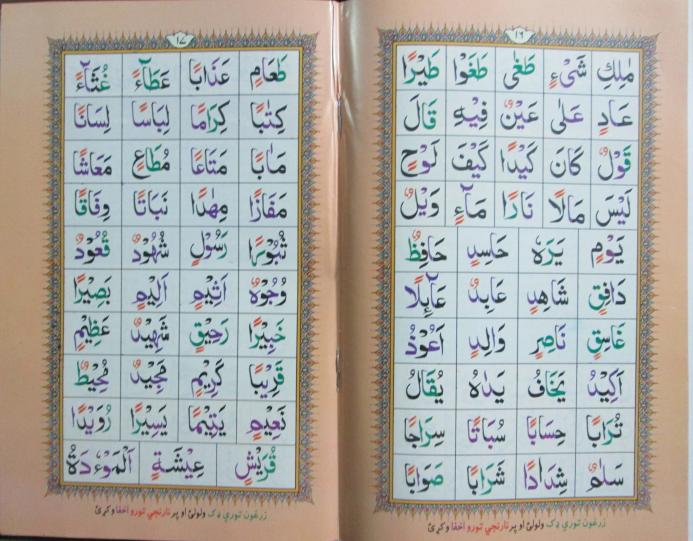 ١٦
مٰلِكِ شَیْءٍ طَغٰی طَغَوْا طَيْرًا
عَادٍ عَلٰی عَيْنٌ فِيْهِ قَالَ
قَوْلٌ كَانَ كَيْدًا كَيْفَ لَوْحٍ
لَيْسَ مَالًا نَارًا مَآءٍ وَيْلٌ
يَوْمٍ يَرَهٗ حَاسِدٍ حَافِظٌ
دَافِقٍ شَاهِدٍ عَابِدٌ عَآئِلًا
غَاسِقٍ نَاصِرٍ وَالِدٍ اَعُوْذُ
اَكِيْدُ يَخَافُ يَدٰهُ يُقَالُ
تُرَابًا حِسَابًا سُبَاتًا سِرَاجًا
سَلٰمٌ شِدَادًا شَرَابًا صَوَابًا
زرغون توري ډک ولولئ او پر نارنجي تورو اخفا وکړئ
١٧
طَعَامٍ عَذَابًا عَطَآءً غُثَآءً
كِتٰبًا كِرَامًا لِبَاسًا لِسَانًا
مَاٰبًا مَتَاعًا مُطَاعٍ مَعَاشًا
مَفَازًا مِهٰدًا نَبَاتًا وِفَاقًا
ثُبُوْرًا رَسُوْلٍ شُهُوْدٌ قُعُوْدٌ
وُجُوْهٌ اَثِيْمٍ اَلِيْمٍ بَصِيْرًا
خَبِيْرًا رَحِيْقٍ شَهِيْدٌ عَظِيْمٍ
قَرِيْبًا كَرِيْمٍ مَجِيْدٌ مُحِيْطٌ
نَعِيْمٍ يَتِيْمًا يَسِيْرًا رُوَيْدًا
قُرَيْشٍ عِيْشَةٍ اَلْمَوْءٗدَةُ
زرغون توري ډک ولولئ او پر نارنجي تورو اخفا وکړئ